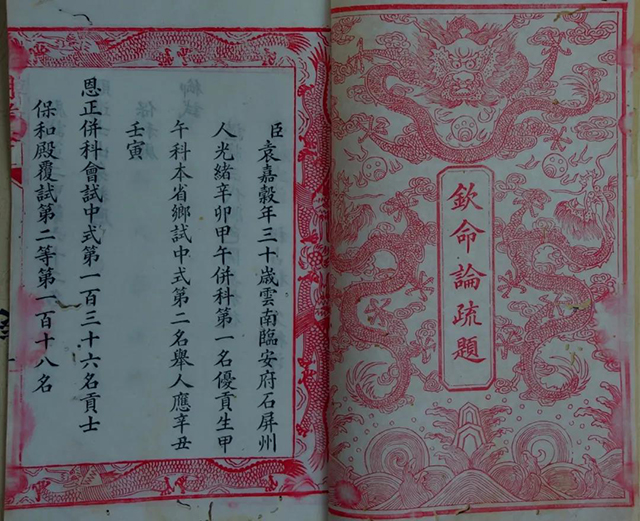 欽命論疏題
臣袁嘉穀年三十歲雲南臨安府石屏州
人光緒辛卯甲午併科第一名優貢生甲
午科本省鄉試中式第二名舉人應辛丑
壬寅
恩正併科會試中式第一百三十六名貢士
保和殿覆試第二等第一百十八名